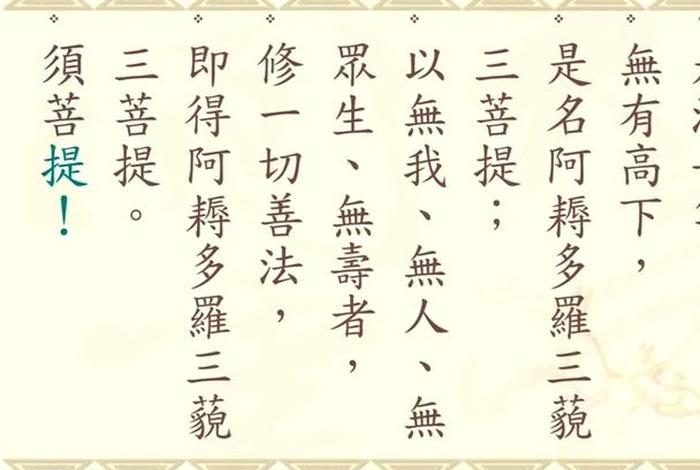 無有高下，
是名阿耨多羅三藐
三菩提；
以無我、無人、無
眾生、無壽者，
修一切善法，
即得阿耨多羅三藐
三菩提。
須菩提！